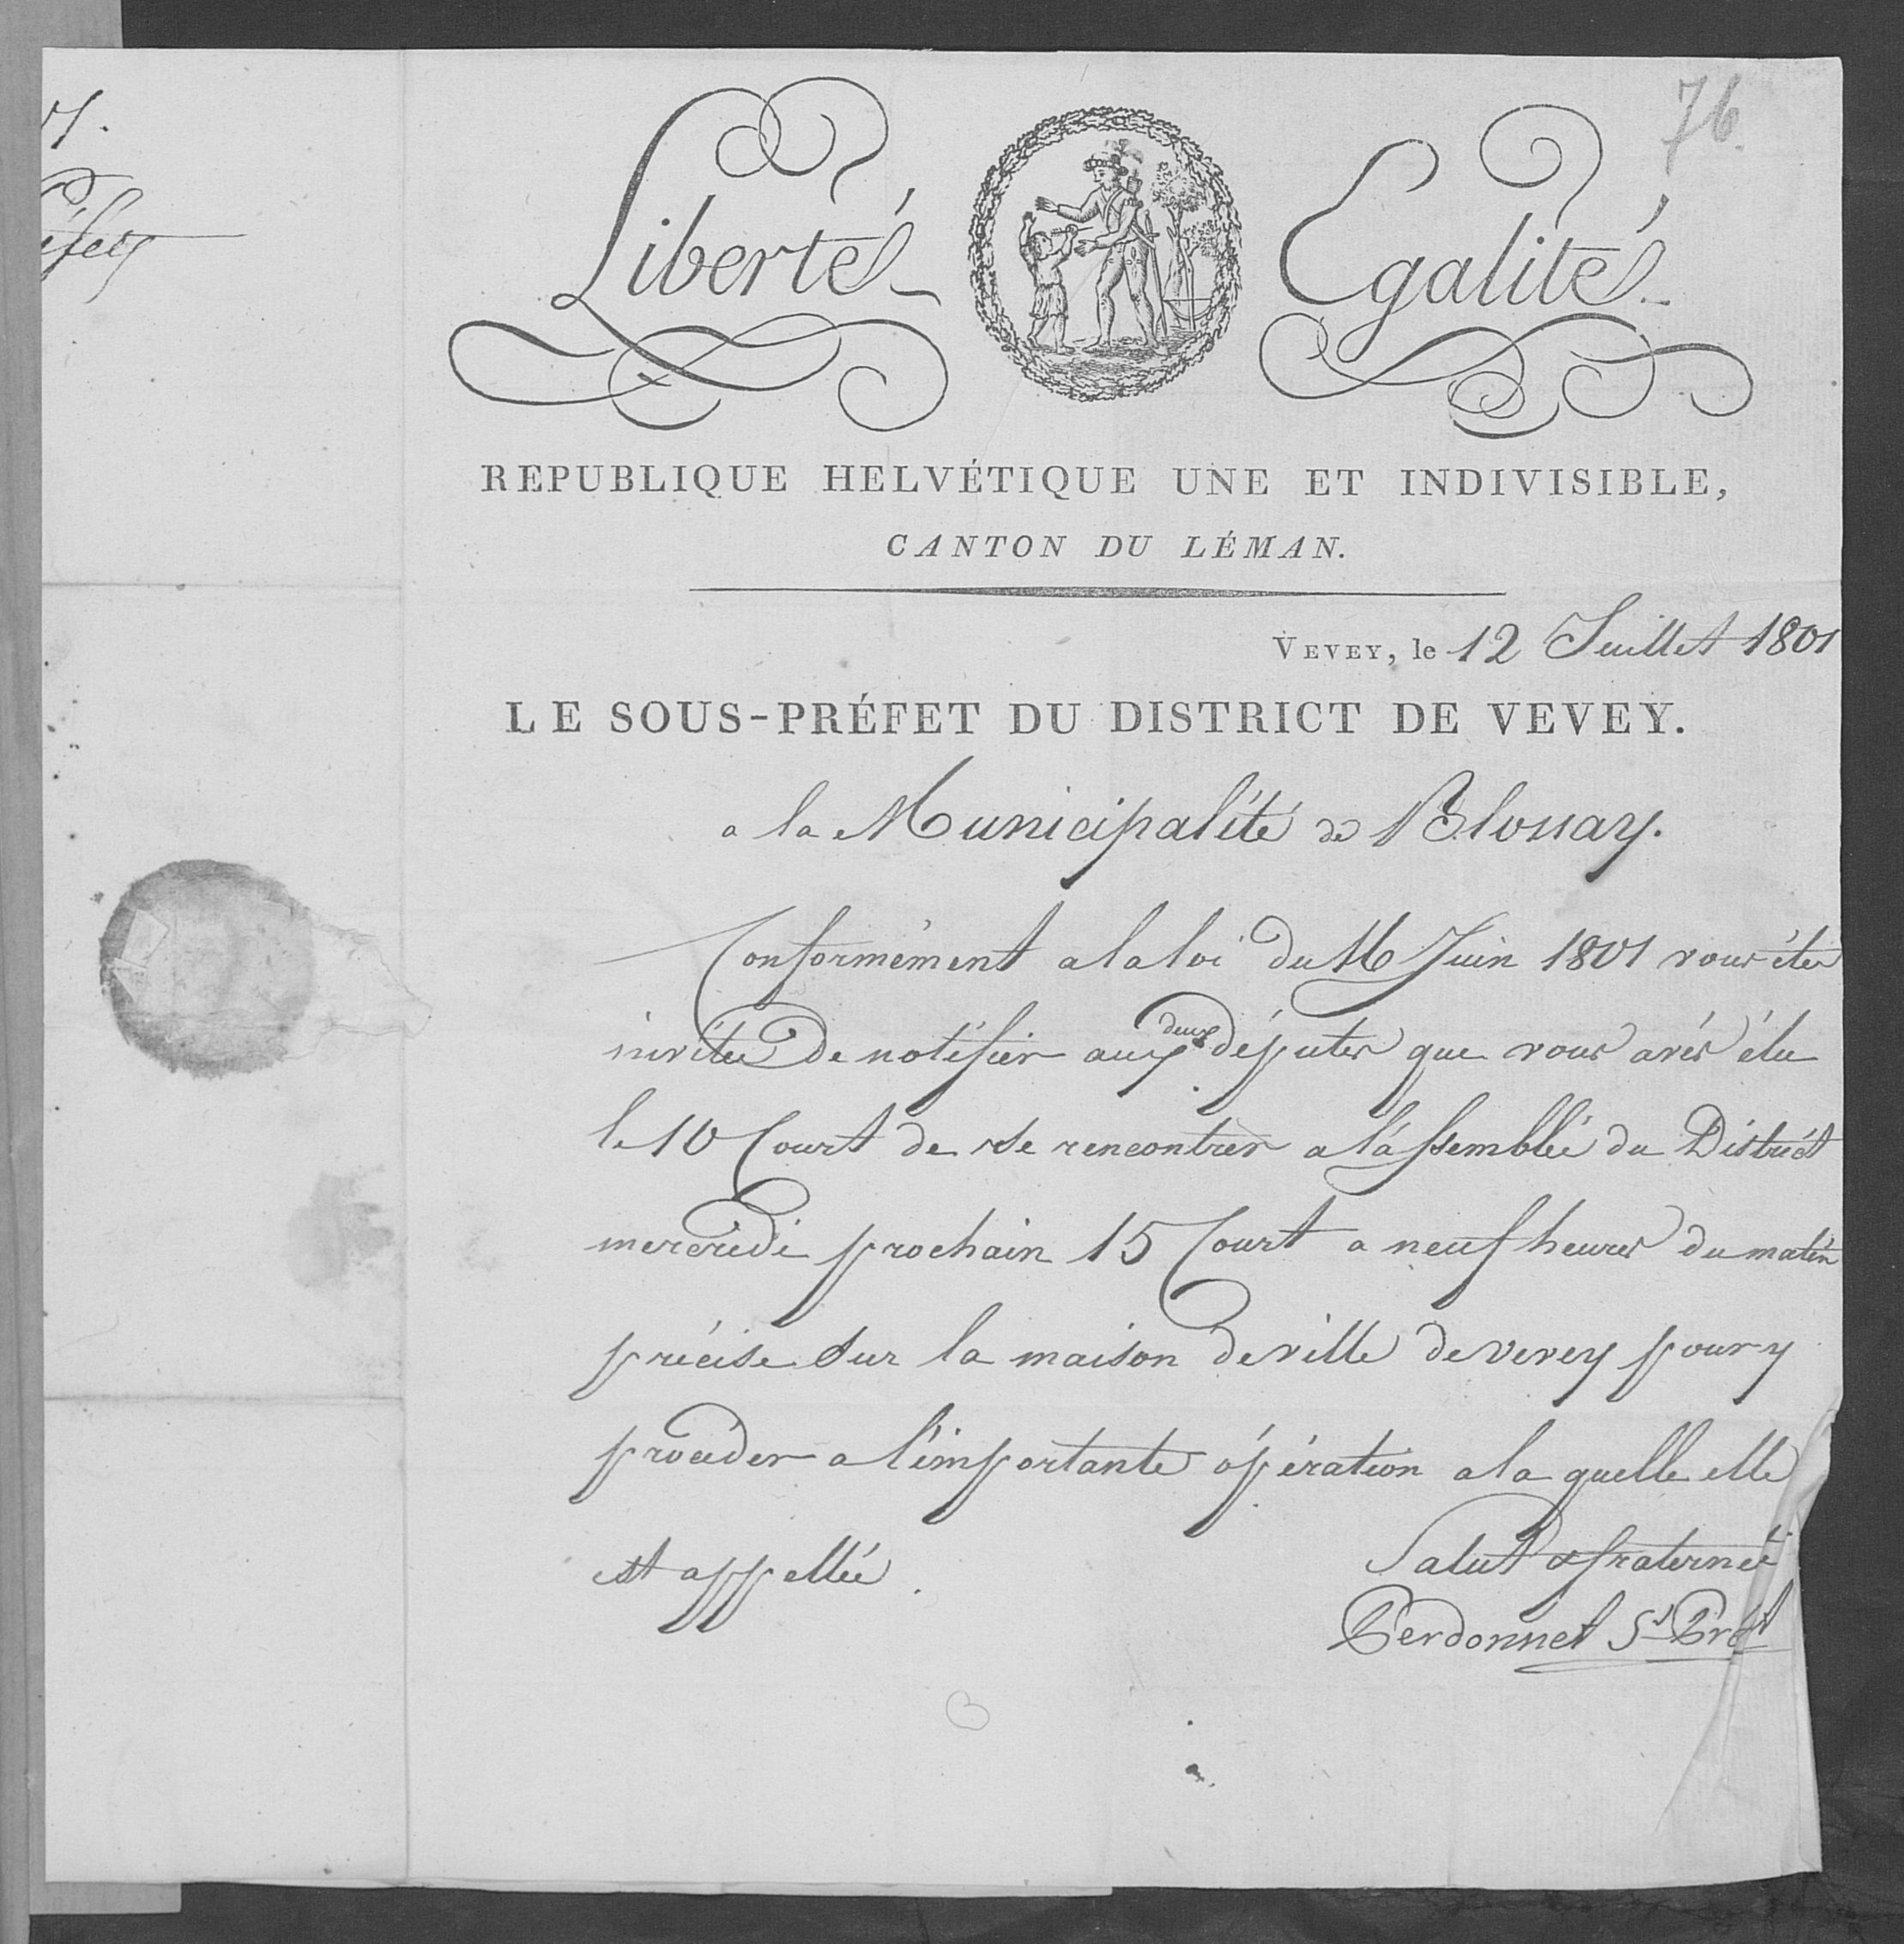 76.
Liberté Egalité
REPUBLIQUE HELVÉTIQUE UNE ET INDIVISIBLE,
CANTON DU LÉMAN.
VEVEY, le 12 Juillet 1801
LE SOUS-PRÉFET DU DISTRICT DE VEVEY.
a la Municipalité de Blonay.
Conformément a la loi du 16 Juin 1801 vous étes
invités de notifier aux deux députes que vous avés élu
le 10 Court de se rencontrer a l'assemblée du District
mercredi prochain 15 Court a neuf heures du matin
précise sur la maison de ville de vevey pour y
proceder a l'importante opération a la quelle elle
est appellée.
Salut & fraternité
Perdonnet Ss Préft